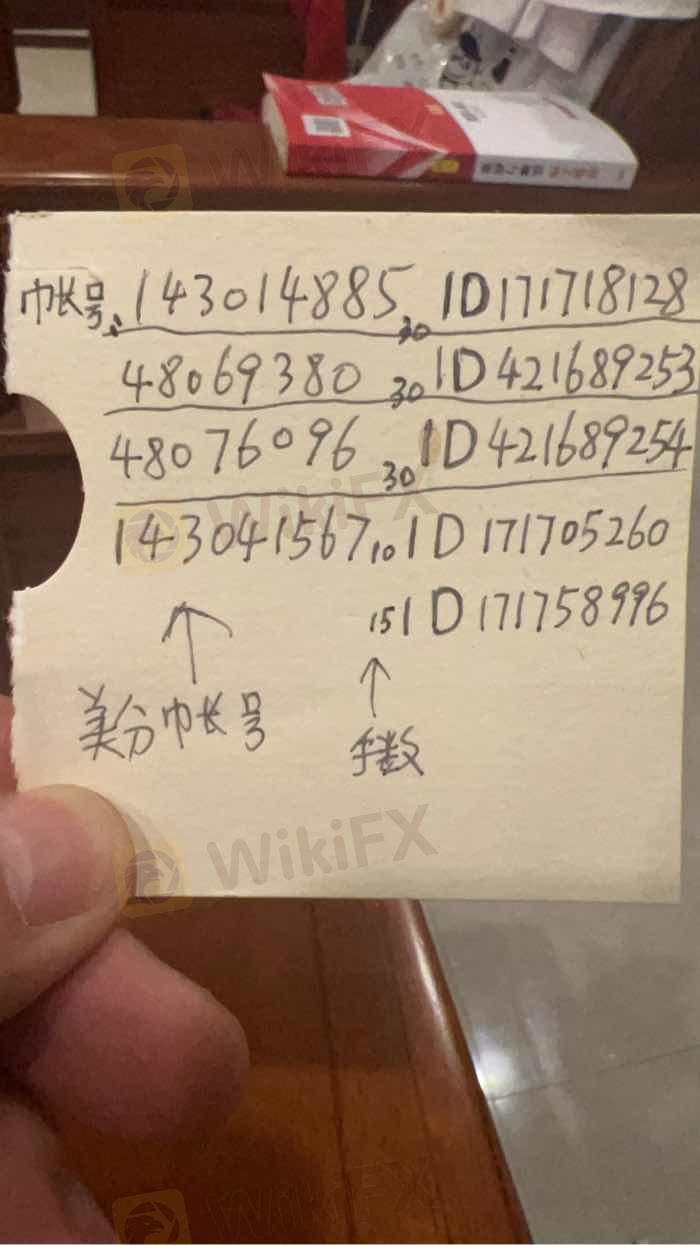 帐号：143014885 30 ID171718128
48069380 30 ID421689253
48076096 30 ID421689254
143041567 10 ID171705260
15 ID171758996
美分帐号
手数
WikiFX
WikiFX
WikiFX
WikiFX